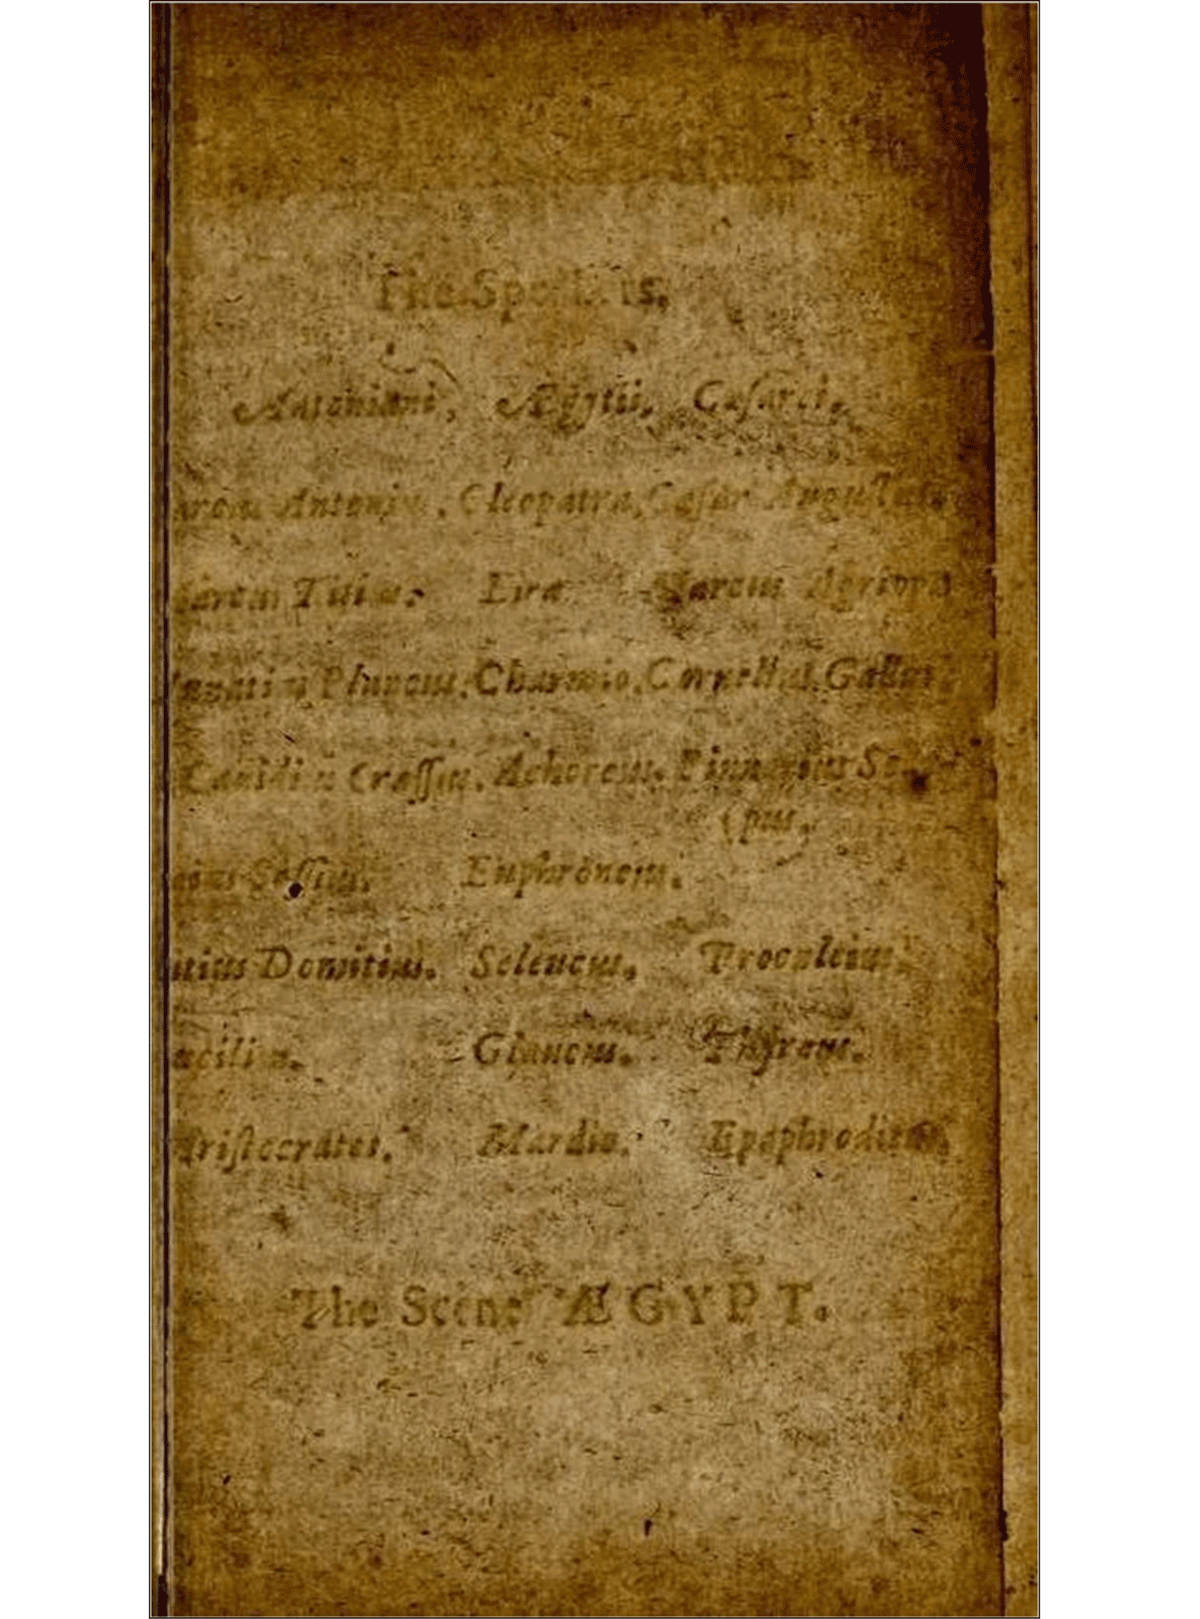 The Speakers.
Antoniani, Ægytii, Cæsarei.
Antonius. Cleopatra. Cæsar Augustus
Titius. Eira Marcus Agrippa
Plancus. Charmio. Cornelius Gallus.
Canidius Crassus. Achoreus. Pinnarius Scar-
(pus.
Sossius. Euphroneus.
Domitius. Seleucus. Proculeius.
Glaucus. Thyreus.
Aristocrates. Mardio. Epaphroditus.
The Scene ÆGYPT.